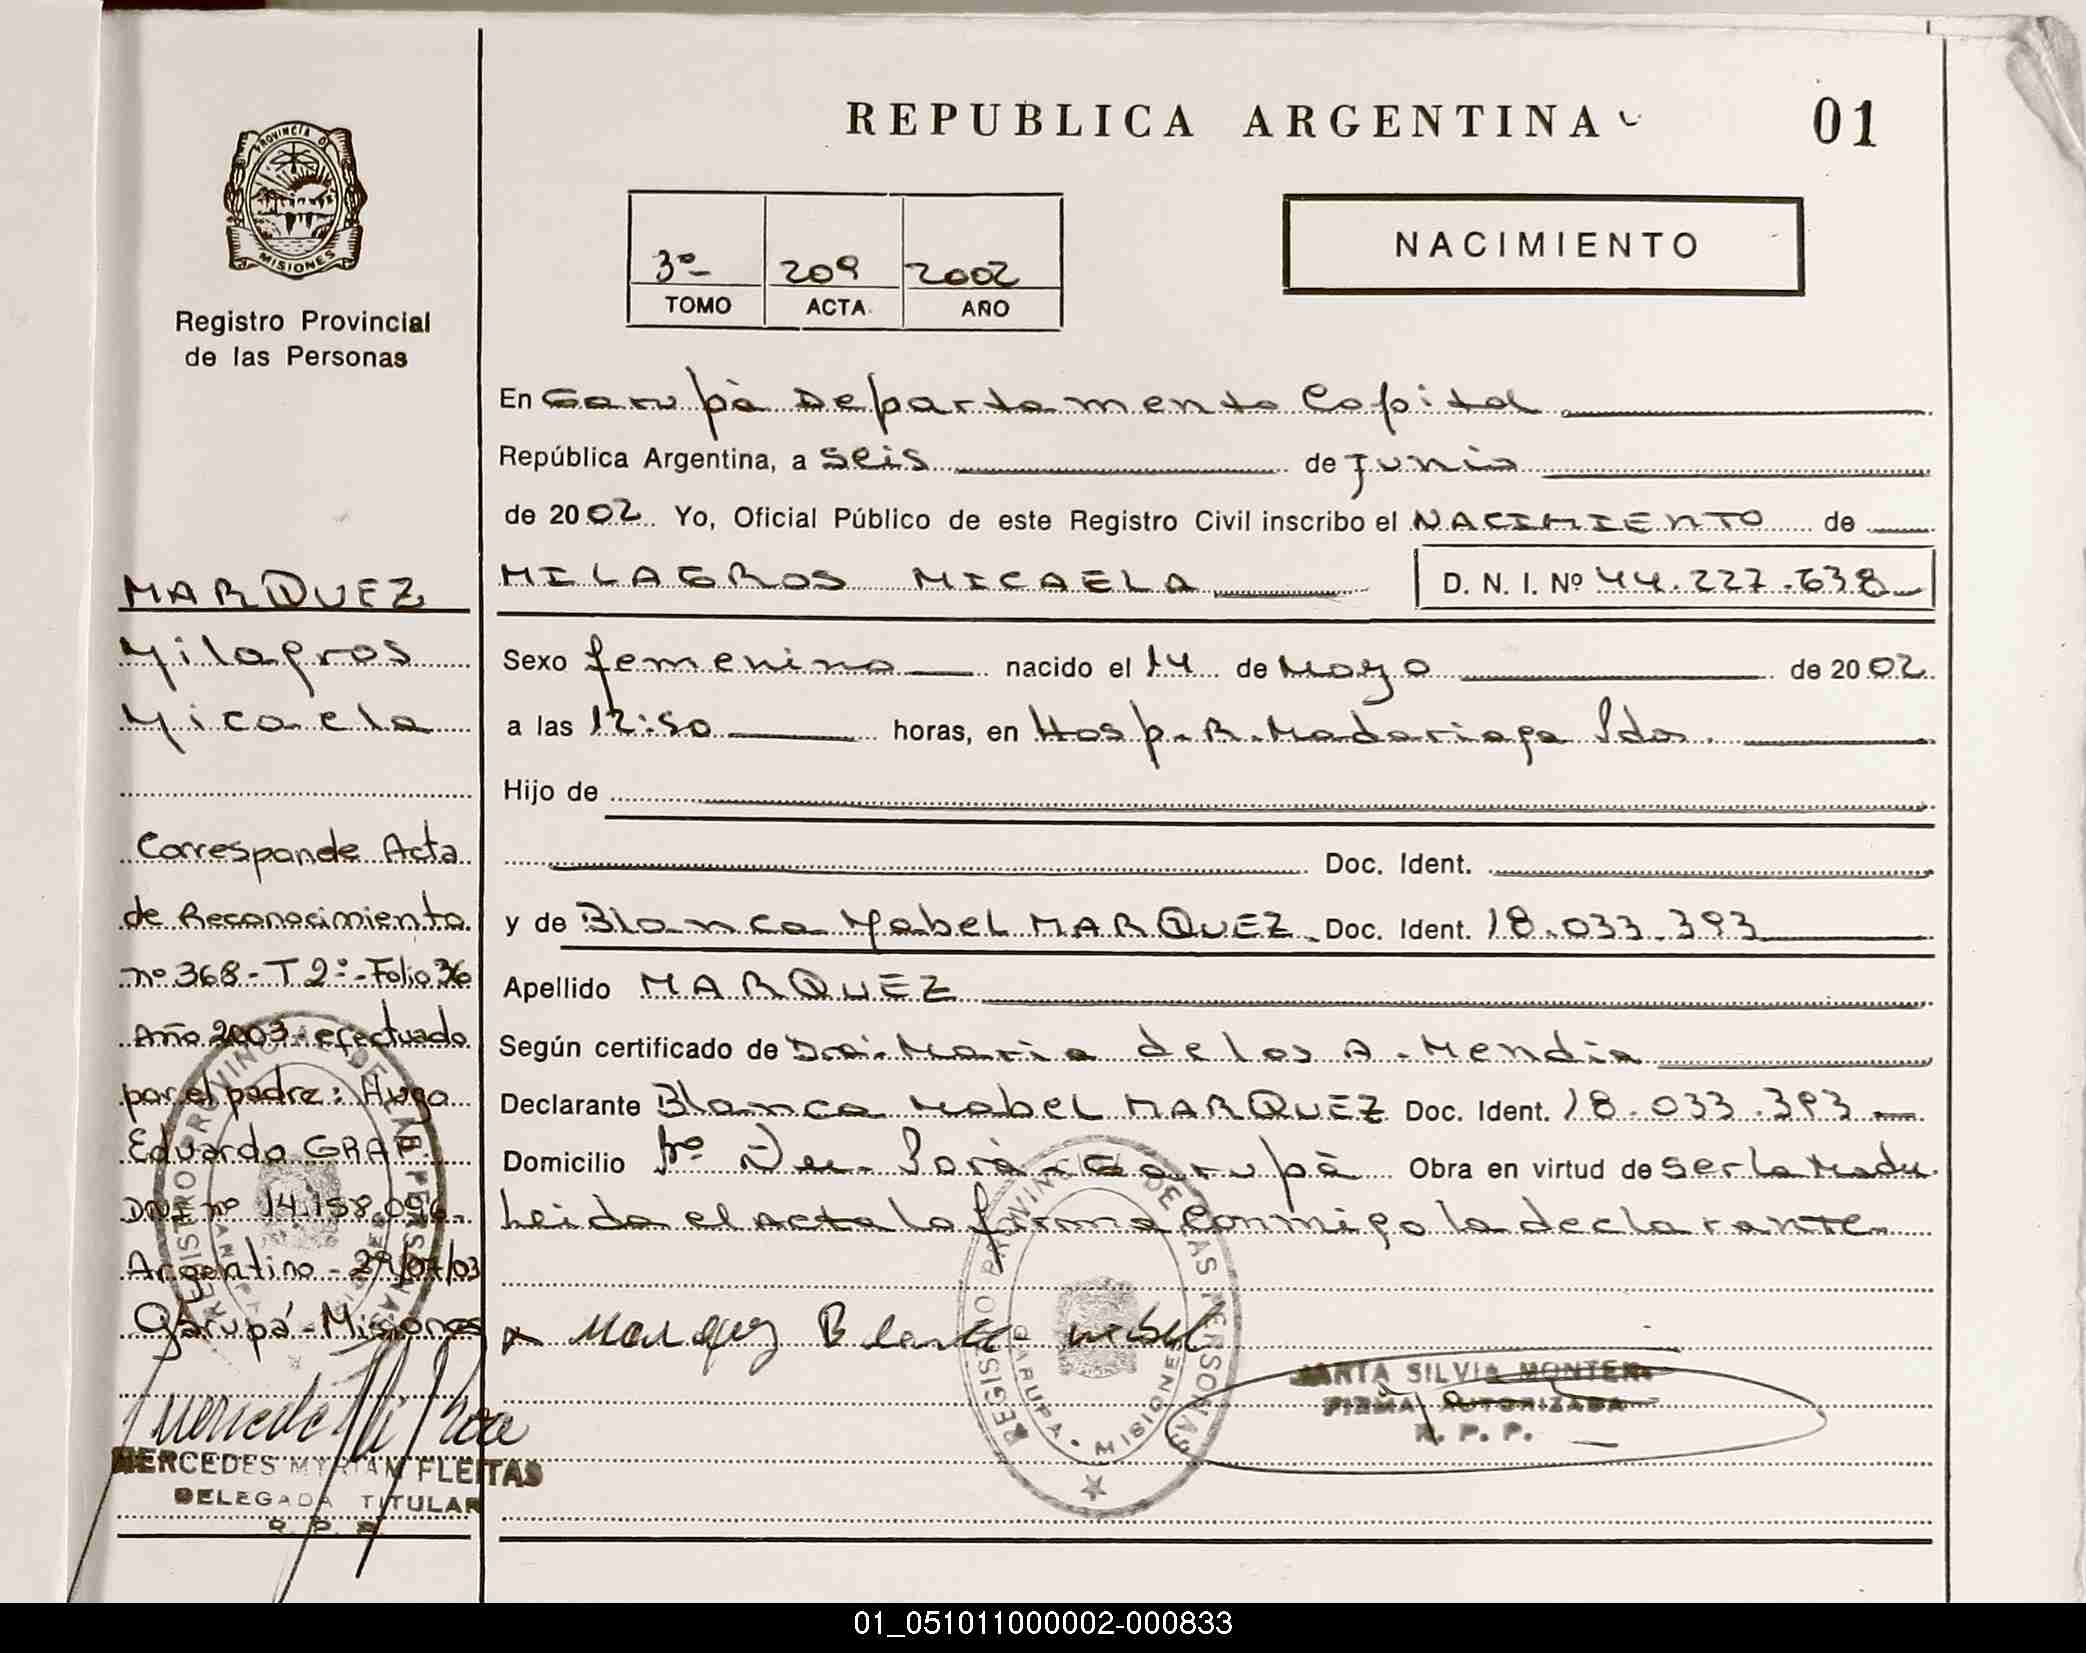 REPUBLICA ARGENTINA
01
PROVINCIA D
MISIONES
Registro Provincial
de las Personas
3º 209 2002
TOMO ACTA AÑO
NACIMIENTO
En Garupà Departamento Capital
República Argentina, a seis de Junio
de 2002 Yo, Oficial Público de este Registro Civil inscribo el NACIMIENTO de
MILAGROS MICAELA
D. N. I. Nº 44.227.638
Sexo femenino nacido el 14 de Mayo de 2002
a las 12:50 horas, en Hosp. R. Madariaga Pdas.
Hijo de
Doc. Ident.
y de Blanca Mabel MARQUEZ Doc. Ident. 18.033.393
Apellido MARQUEZ
Según certificado de Dra. Maria de los A. Mendia
Declarante Blanca Mabel MARQUEZ Doc. Ident. 18.033.393
Domicilio Garupà Obra en virtud de ser la Madre.
Leida el acta la firma conmigo la declarante
Marquez Blanca mabel
REGISTRO PROVINCIAL DE LAS PERSONAS
GARUPA • MISIONES
SILVIA
FIRMA AUTORIZADA
R. P. P.
MARQUEZ
Milagros
Micaela
Corresponde Acta
de Reconocimiento
nº 368- T 2º- Folio 36
Año 2003- efectuado
por el padre: Hugo
Eduardo GRAF.
DNI nº 14.158.096-
Argentino - 29/07/03
Garupá- Misiones
REGISTRO PROVINCIAL DE LAS PERSONAS
MERCEDES MYRIAM FLEITAS
DELEGADA TITULAR
R. P. P.
01_051011000002-000833